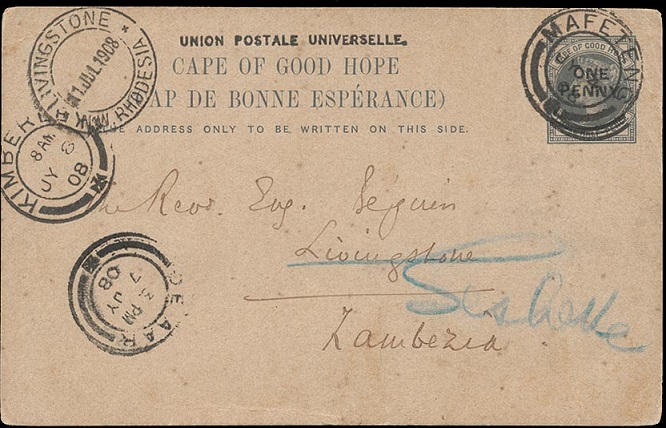 UNION POSTALE UNIVERSELLE.
CAPE OF GOOD HOPE
(CAP DE BONNE ESPÉRANCE)
ADDRESS ONLY TO BE WRITTEN ON THIS SIDE.
CAPE OF GOOD HOPE
ONE
PENNY
MAFETENG
LIVINGSTONE
11 JUL 1908
N.W. RHODESIA
KIMBER
8 AM
JY 8
08
DE AAR
PM
7 JY
08
The Revd. Eug. Séguin
Livingstone
Sesheke
Zambezia